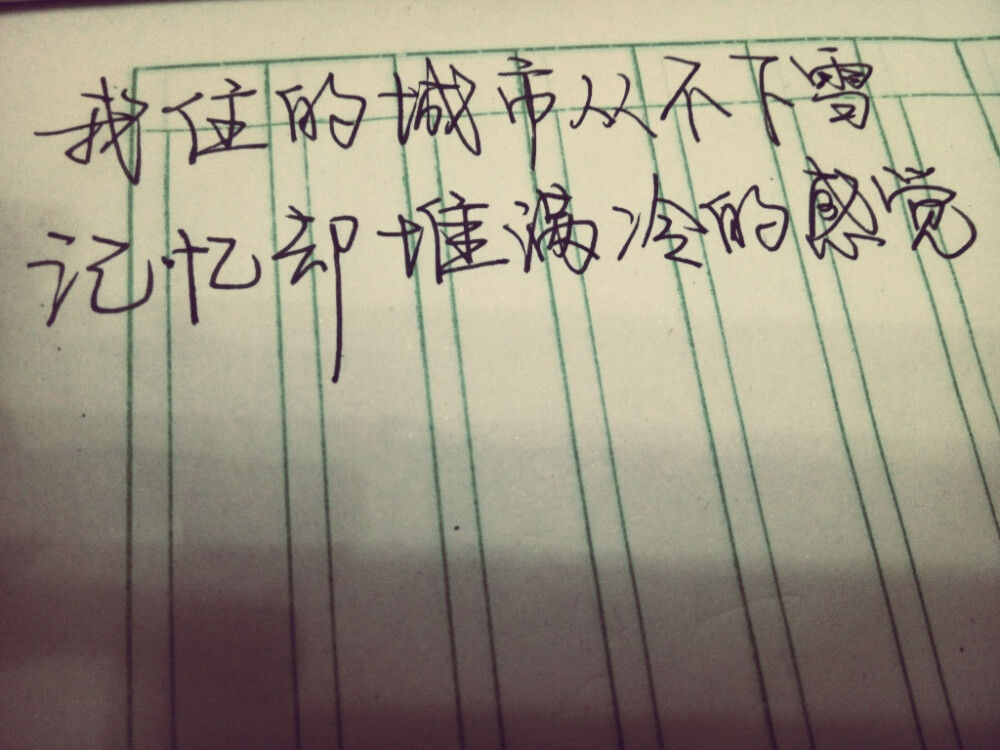 我住的城市从不下雪
记忆却堆满冷的感觉